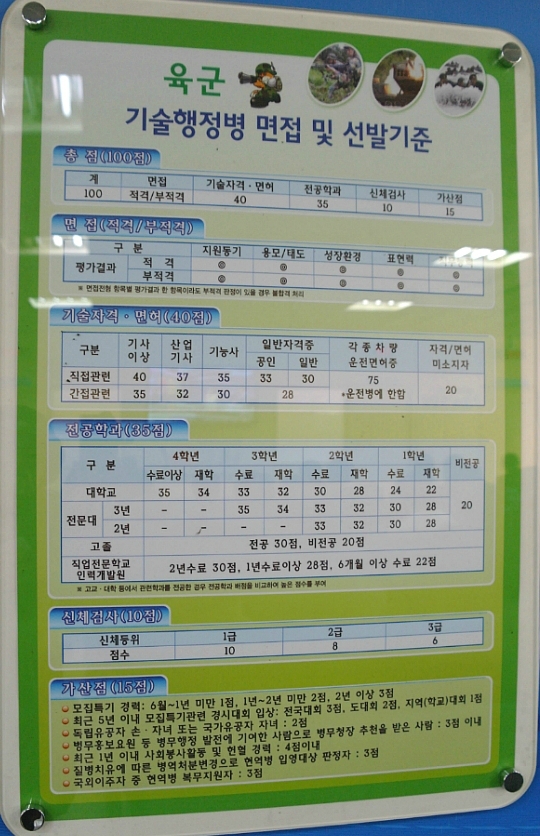 육군
기술행정병 면접 및 선발기준
총 점(100점)
계 면접 기술자격·면허 전공학과 신체검사 가산점
100 적격/부적격 40 35 10 15
면 접(적격/부적격)
구 분 지원동기 용모/태도 성장환경 표현력
평가결과 적 격 ◎ ◎ ◎ ◎ ◎
부적격 ◎ ◎ ◎ ◎ ◎
※ 면접전형 항목별 평가결과 한 항목이라도 부적격 판정이 있을 경우 불합격 처리
기술자격·면허(40점)
구분 기사 이상 산업 기사 기능사 일반자격증 공인 일반 각 종 차 량 운전면허증 자격/면허 미소지자
직접관련 40 37 35 33 30 75 20
간접관련 35 32 30 28 *운전병에 한함
전공학과(35점)
구 분 4학년 3학년 2학년 1학년 비전공
수료이상 재학 수료 재학 수료 재학 수료 재학
대학교 35 34 33 32 30 28 24 22 20
전문대 3년 - - 35 34 33 32 30 28
2년 - - - - 33 32 30 28
고졸 전공 30점, 비전공 20점
직업전문학교 인력개발원 2년수료 30점, 1년수료이상 28점, 6개월 이상 수료 22점
※ 고교·대학 등에서 관련학과를 전공한 경우 전공학과 배점을 비교하여 높은 점수를 부여
신체검사(10점)
신체등위 1급 2급 3급
점수 10 8 6
가산점(15점)
모집특기 경력: 6월~1년 미만 1점, 1년~2년 미만 2점, 2년 이상 3점
최근 5년 이내 모집특기관련 경시대회 입상: 전국대회 3점, 도대회 2점, 지역(학교)대회 1점
독립유공자 손·자녀 또는 국가유공자 자녀 : 2점
병무홍보요원 등 병무행정 발전에 기여한 사람으로 병무청장 추천을 받은 사람 : 3점 이내
최근 1년 이내 사회봉사활동 및 헌혈 경력 : 4점이내
질병치유에 따른 병역처분변경으로 현역병 입영대상 판정자 : 3점
국외이주자 중 현역병 복무지원자 : 3점